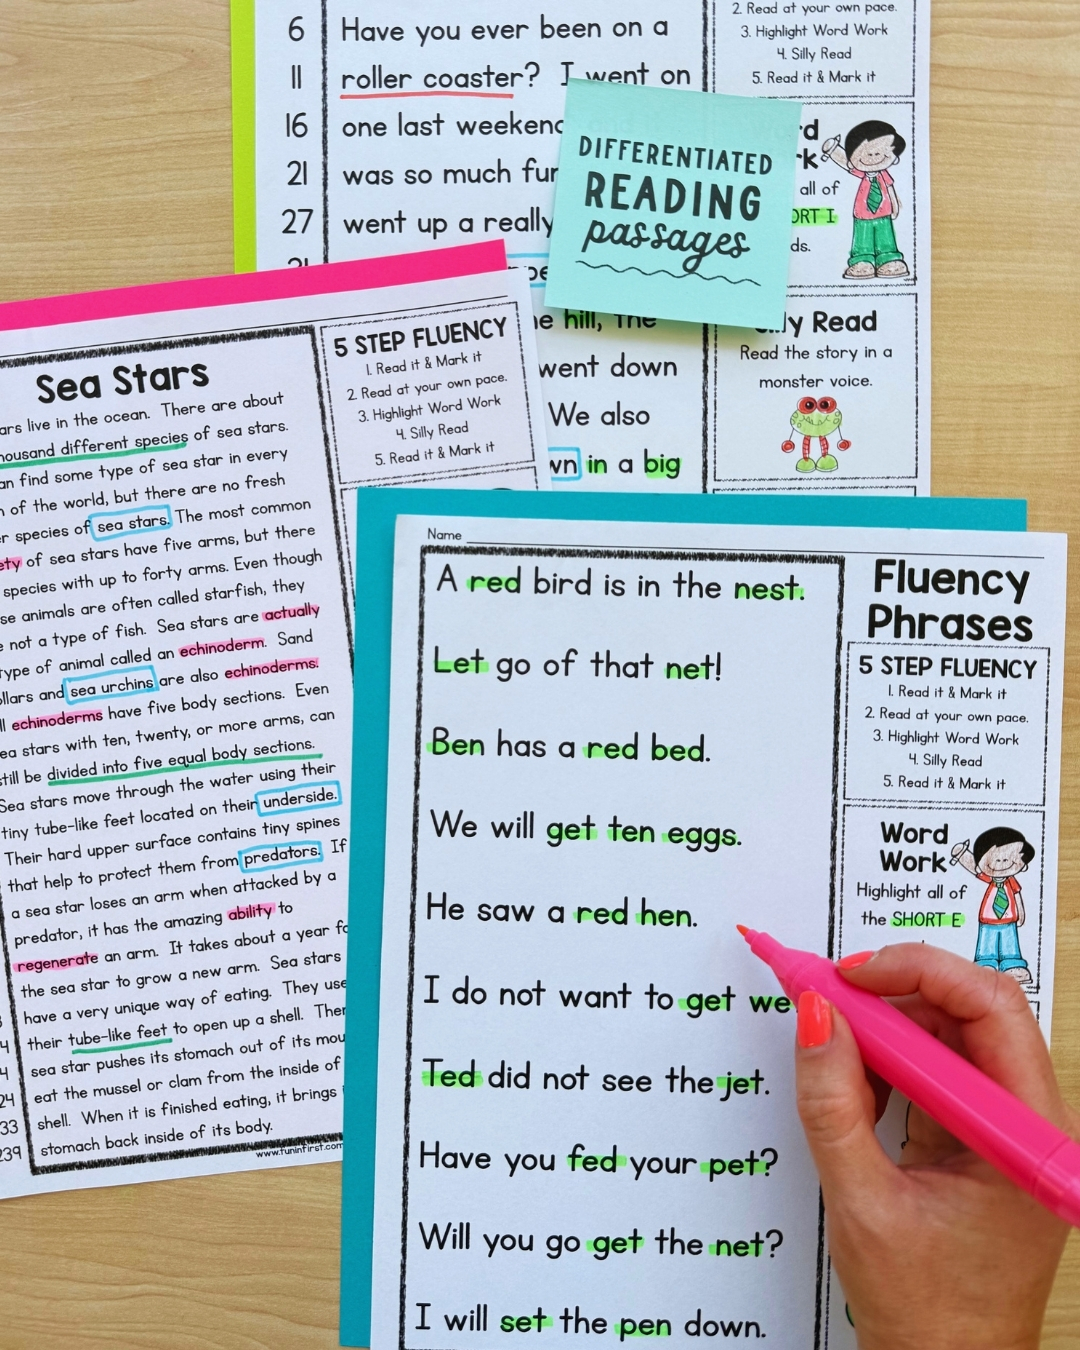 6 Have you ever been on a
11 roller coaster? I went on
16 one last weekend
21 was so much fun
27 went up a really
31
hill, The
went down
We also
in a big
2. Read at your own pace.
3. Highlight Word Work
4. Silly Read
5. Read it & Mark it
all of
SHORT I
Silly Read
Read the story in a
monster voice.
DIFFERENTIATED
READING
passages
Sea Stars
live in the ocean. There are about
thousand different species of sea stars.
find some type of sea star in every
of the world, but there are no fresh
species of sea stars. The most common
of sea stars have five arms, but there
species with up to forty arms. Even though
animals are often called starfish, they
not a type of fish. Sea stars are actually
type of animal called an echinoderm. Sand
and sea urchins are also echinoderms.
echinoderms have five body sections. Even
sea stars with ten, twenty, or more arms, can
still be divided into five equal body sections.
Sea stars move through the water using their
tiny tube-like feet located on their underside.
Their hard upper surface contains tiny spines
that help to protect them from predators. If
a sea star loses an arm when attacked by a
predator, it has the amazing ability to
regenerate an arm. It takes about a year for
the sea star to grow a new arm. Sea stars
have a very unique way of eating. They use
their tube-like feet to open up a shell. Then
sea star pushes its stomach out of its
eat the mussel or clam from the inside of
shell. When it is finished eating, it brings
239 stomach back inside of its body.
www.funinfirst.com
5 STEP FLUENCY
1. Read it & Mark it
2. Read at your own pace.
3. Highlight Word Work
4. Silly Read
5. Read it & Mark it
Name
A red bird is in the nest.
Let go of that net!
Ben has a red bed.
We will get ten eggs.
He saw a red hen.
I do not want to get
Ted did not see the jet.
Have you fed your pet?
Will you go get the net?
I will set the pen down.
Fluency
Phrases
5 STEP FLUENCY
1. Read it & Mark it
2. Read at your own pace.
3. Highlight Word Work
4. Silly Read
5. Read it & Mark it
Word
Work
Highlight all of
the SHORT E